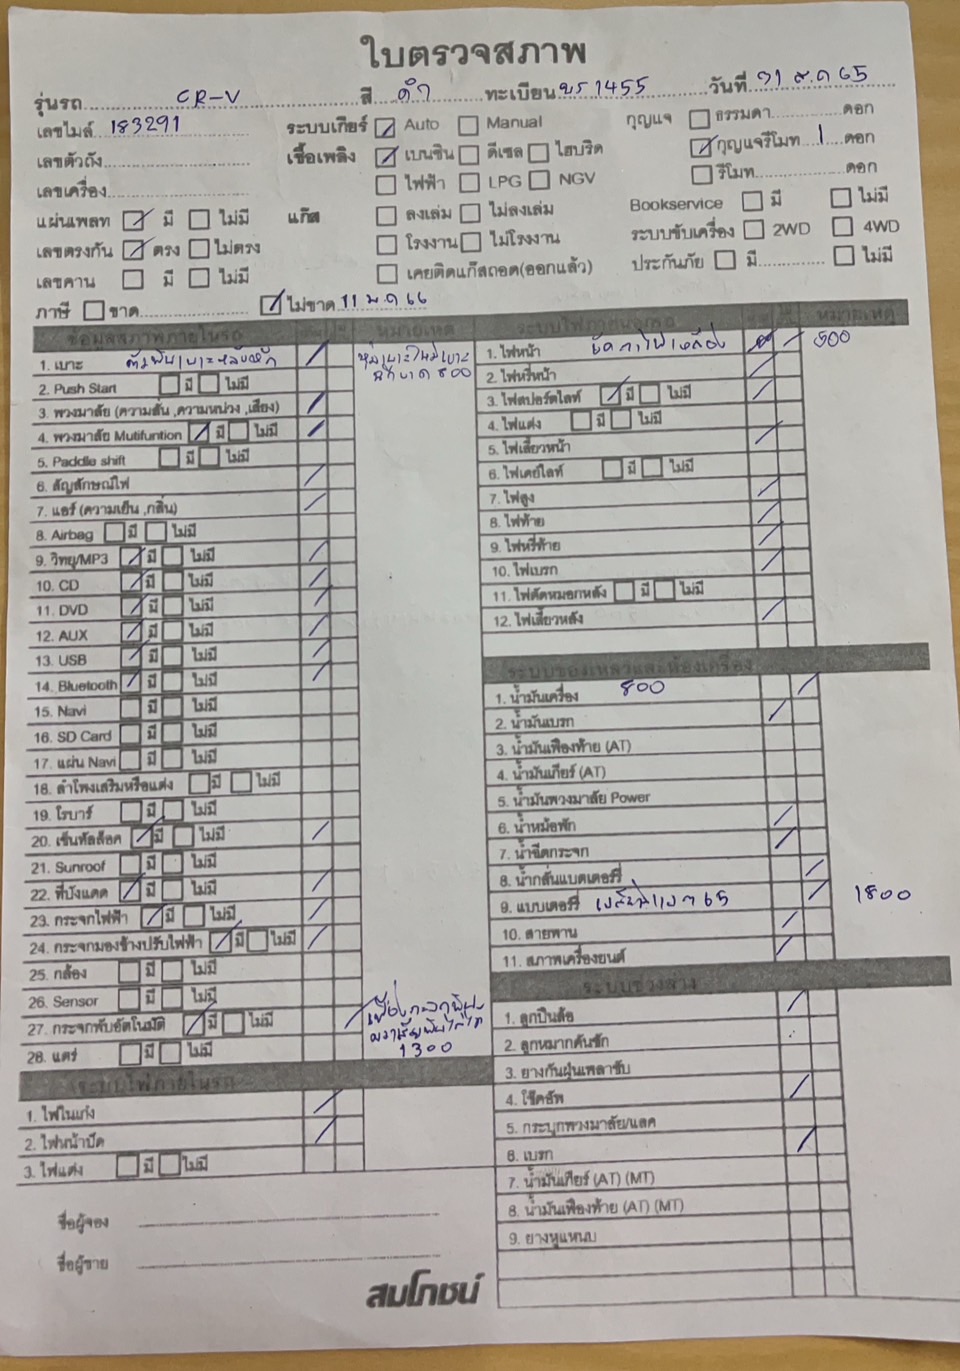 ใบตรวจสภาพ
รุ่นรถ CR-V สี ดำ ทะเบียน 1455 วันที่ 21 65
เลขไมล์ 183291 ระบบเกียร์ Auto Manual กุญแจ ธรรมดา ดอก
เลขตัวถัง เชื้อเพลิง เบนซิน ดีเซล ไฮบริด กุญแจรีโมท 1 ดอก
เลขเครื่อง ไฟฟ้า LPG NGV รีโมท ดอก
แผ่นเพลท มี ไม่มี แก๊ส ลงเล่ม ไม่ลงเล่ม Bookservice มี ไม่มี
เลขตรงกัน ตรง ไม่ตรง โรงงาน ไม่โรงงาน ระบบขับเครื่อง 2WD 4WD
เลขคาน มี ไม่มี เคยติดแก๊สถอด(ออกแล้ว) ประกันภัย มี ไม่มี
ภาษี ขาด ไม่ขาด 11 พ.ค 66
ข้อมูลสภาพภายในรถ หมายเหตุ
1. เบาะ
800
2. Push Start มี ไม่มี
3. พวงมาลัย (ความสั่น ,ความหน่วง ,เสียง)
4. พวงมาลัย Mutifuntion มี ไม่มี
5. Paddle shift มี ไม่มี
6. สัญลักษณ์ไฟ
7. แอร์ (ความเย็น ,กลิ่น)
8. Airbag มี ไม่มี
9. วิทยุ/MP3 มี ไม่มี
10. CD มี ไม่มี
11. DVD มี ไม่มี
12. AUX มี ไม่มี
13. USB มี ไม่มี
14. Bluetooth มี ไม่มี
15. Navi มี ไม่มี
16. SD Card มี ไม่มี
17. แผ่น Navi มี ไม่มี
18. ลำโพงเสริมหรือแต่ง มี ไม่มี
19. โรบาร์ มี ไม่มี
20. เซ็นทัลล็อค มี ไม่มี
21. Sunroof มี ไม่มี
22. ที่บังแดด มี ไม่มี
23. กระจกไฟฟ้า มี ไม่มี
24. กระจกมองข้างปรับไฟฟ้า มี ไม่มี
25. กล้อง มี ไม่มี
26. Sensor มี ไม่มี
27. กระจกพับอัตโนมัติ มี ไม่มี
1300
28. แตร์ มี ไม่มี
ระบบไฟภายในรถ
1. ไฟในเก๋ง
2. ไฟหน้าปัด
3. ไฟแต่ง มี ไม่มี
ชื่อผู้จอง
ชื่อผู้ขาย
สมโภชน์
ระบบไฟภายนอกรถ หมายเหตุ
1. ไฟหน้า 500
2. ไฟหรี่หน้า
3. ไฟสปอร์ตไลท์ มี ไม่มี
4. ไฟแต่ง มี ไม่มี
5. ไฟเลี้ยวหน้า
6. ไฟเดย์ไลท์ มี ไม่มี
7. ไฟสูง
8. ไฟท้าย
9. ไฟหรี่ท้าย
10. ไฟเบรก
11. ไฟตัดหมอกหลัง มี ไม่มี
12. ไฟเลี้ยวหลัง
ระบบของเหลวและห้องเครื่อง
1. น้ำมันเครื่อง 800
2. น้ำมันเบรก
3. น้ำมันเฟืองท้าย (AT)
4. น้ำมันเกียร์ (AT)
5. น้ำมันพวงมาลัย Power
6. น้ำหม้อพัก
7. น้ำฉีดกระจก
8. น้ำกลั่นแบตเตอร์รี่
9. แบบเตอร์รี่ 65 1800
10. สายพาน
11. สภาพเครื่องยนต์
ระบบช่วงล่าง
1. ลูกปืนล้อ
2. ลูกหมากคันชัก
3. ยางกันฝุ่นเพลาขับ
4. โช๊คอัพ
5. กระบุกพวงมาลัย/แลค
6. เบรก
7. น้ำมันเกียร์ (AT) (MT)
8. น้ำมันเฟืองท้าย (AT) (MT)
9. ยางหูแหนบ